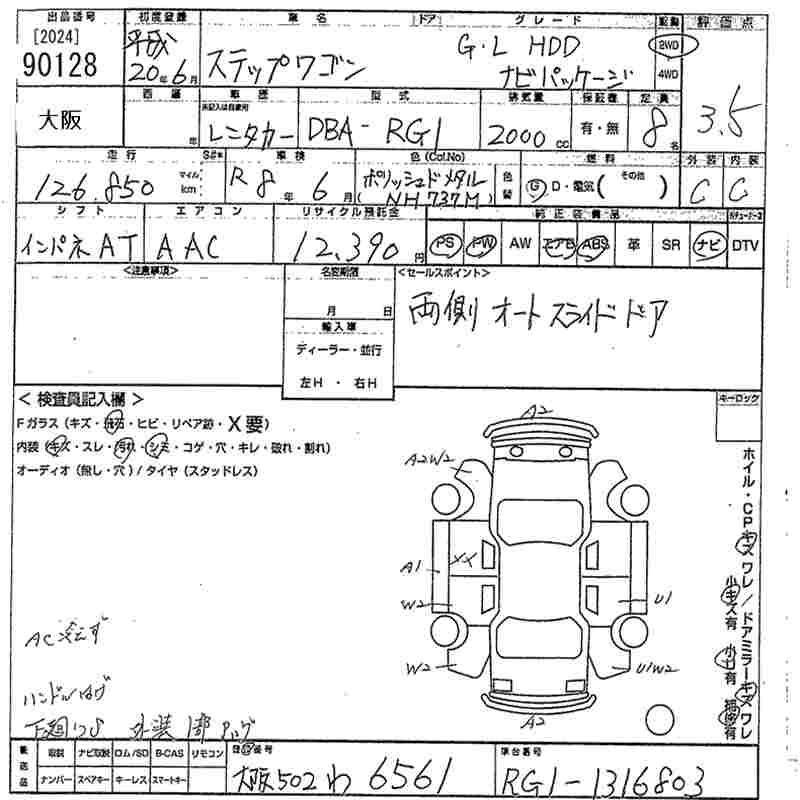 出品番号 初度登録 車名 ドア グレード 駆動 評価点
[2024]
90128 平成 20年6月 ステップワゴン G・L HDD ナビパッケージ 2WD 4WD 3.5
西暦 車歴 型式 排気量 保証書 定員
大阪 年 未記入は自家用 レンタカー DBA-RG1 2000cc 有・無 8名
走行 車検 色(Col.No) 燃料 外装 内装
126.850 マイル km R8年6月 ポリッシュドメタル (NH737M) 色替 G D・電気( その他 ) C C
シフト エアコン リサイクル預託金 純正装備品
インパネAT AAC 12,390円 PS PW AW エアB ABS 革 SR ナビ DTV
<注意事項> 名変期限 <セールスポイント>
月 日 両側オートスライドドア
輸入車
ディーラー・並行
左H・右H
<検査員記入欄> キーロック
Fガラス(キズ・飛石・ヒビ・リペア跡・X要)
内装(キズ・スレ・汚れ・シミ・コゲ・穴・キレ・破れ・割れ)
オーディオ(無し・穴)/タイヤ(スタッドレス)
A2
A2W2
A1 XX
W2 U1
W2 U1W2
A2
ホイル・CPキズワレ/ドアミラーキズワレ
小キズ有 小凹有 補修有
AC冷えず
ハンドルハゲ
下廻サビ 外装1部
後送品 取説 ナビ取説 ロム/SD B-CAS リモコン 登録番号 車台番号
ナンバー スペアキー キーレス スマートキー 大阪502わ6561 RG1-1316803